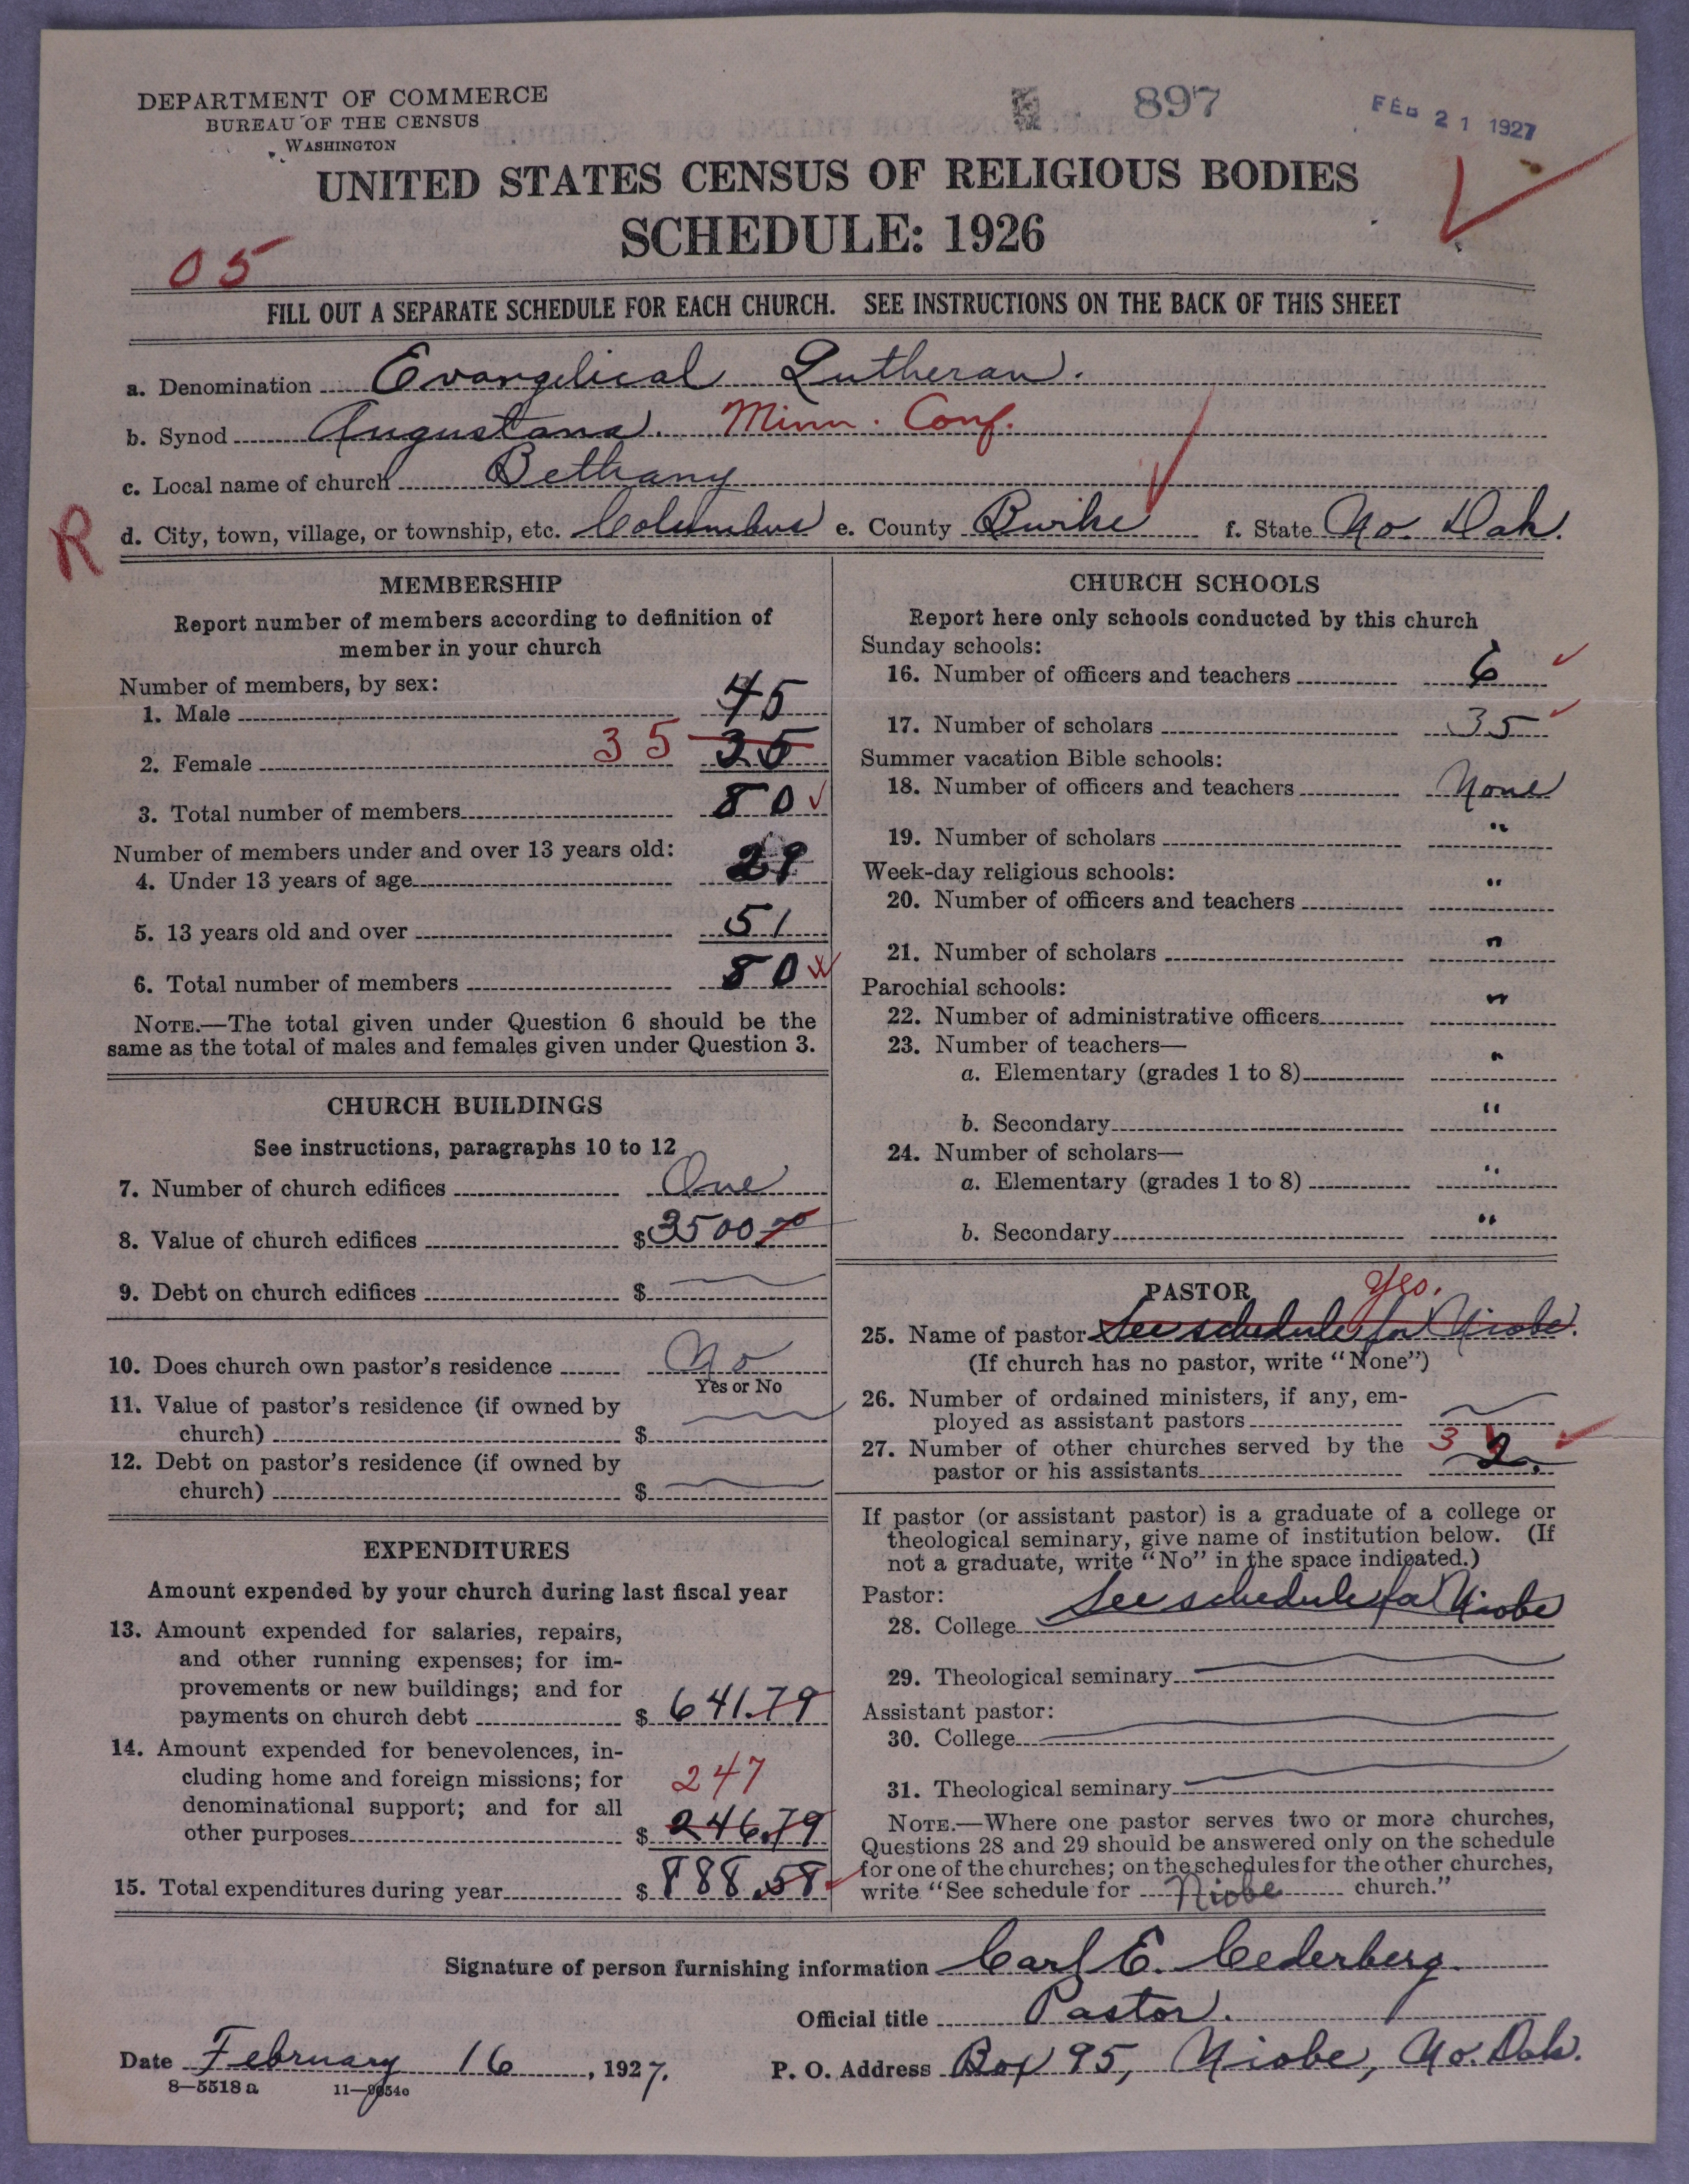 DEPARTMENT OF COMMERCE
BUREAU OF THE CENSUS
WASHINGTON
897
FEB 21 1927
UNITED STATES CENSUS OF RELIGIOUS BODIES
SCHEDULE: 1926
05
FILL OUT A SEPARATE SCHEDULE FOR EACH CHURCH. SEE INSTRUCTIONS ON THE BACK OF THIS SHEET
a. Denomination Evangelical Lutheran.
b. Synod Augustana. Minn. Conf.
c. Local name of church Bethany
R
d. City, town, village, or township, etc. Columbus e. County Burke f. State No. Dak.
MEMBERSHIP
Report number of members according to definition of
member in your church
Number of members, by sex:
1. Male 45
2. Female 35 35
3. Total number of members 80
Number of members under and over 13 years old:
4. Under 13 years of age 29
5. 13 years old and over 51
6. Total number of members 80
NOTE.—The total given under Question 6 should be the
same as the total of males and females given under Question 3.
CHURCH BUILDINGS
See instructions, paragraphs 10 to 12
7. Number of church edifices One
8. Value of church edifices $3500.00
9. Debt on church edifices $
10. Does church own pastor's residence No
Yes or No
11. Value of pastor's residence (if owned by
church) $
12. Debt on pastor's residence (if owned by
church) $
EXPENDITURES
Amount expended by your church during last fiscal year
13. Amount expended for salaries, repairs,
and other running expenses; for im-
provements or new buildings; and for
payments on church debt $ 641.79
14. Amount expended for benevolences, in-
cluding home and foreign missions; for
denominational support; and for all
247
other purposes $ 246.79
15. Total expenditures during year $ 888.58
CHURCH SCHOOLS
Report here only schools conducted by this church
Sunday schools:
16. Number of officers and teachers 6
17. Number of scholars 35
Summer vacation Bible schools:
18. Number of officers and teachers None
19. Number of scholars "
Week-day religious schools:
20. Number of officers and teachers "
21. Number of scholars "
Parochial schools:
22. Number of administrative officers "
23. Number of teachers—
a. Elementary (grades 1 to 8) "
b. Secondary "
24. Number of scholars—
a. Elementary (grades 1 to 8) "
b. Secondary "
PASTOR Yes.
25. Name of pastor See schedule for Niobe.
(If church has no pastor, write "None")
26. Number of ordained ministers, if any, em-
ployed as assistant pastors
27. Number of other churches served by the
pastor or his assistants 3 2.
If pastor (or assistant pastor) is a graduate of a college or
theological seminary, give name of institution below. (If
not a graduate, write "No" in the space indicated.)
Pastor:
28. College See schedule for Niobe
29. Theological seminary
Assistant pastor:
30. College
31. Theological seminary
NOTE.—Where one pastor serves two or more churches,
Questions 28 and 29 should be answered only on the schedule
for one of the churches; on the schedules for the other churches,
write "See schedule for Niobe church."
Signature of person furnishing information Carl E. Cederberg.
Official title Pastor.
Date February 16, 1927. P. O. Address Box 95, Niobe, No. Dak.
8—5518 a